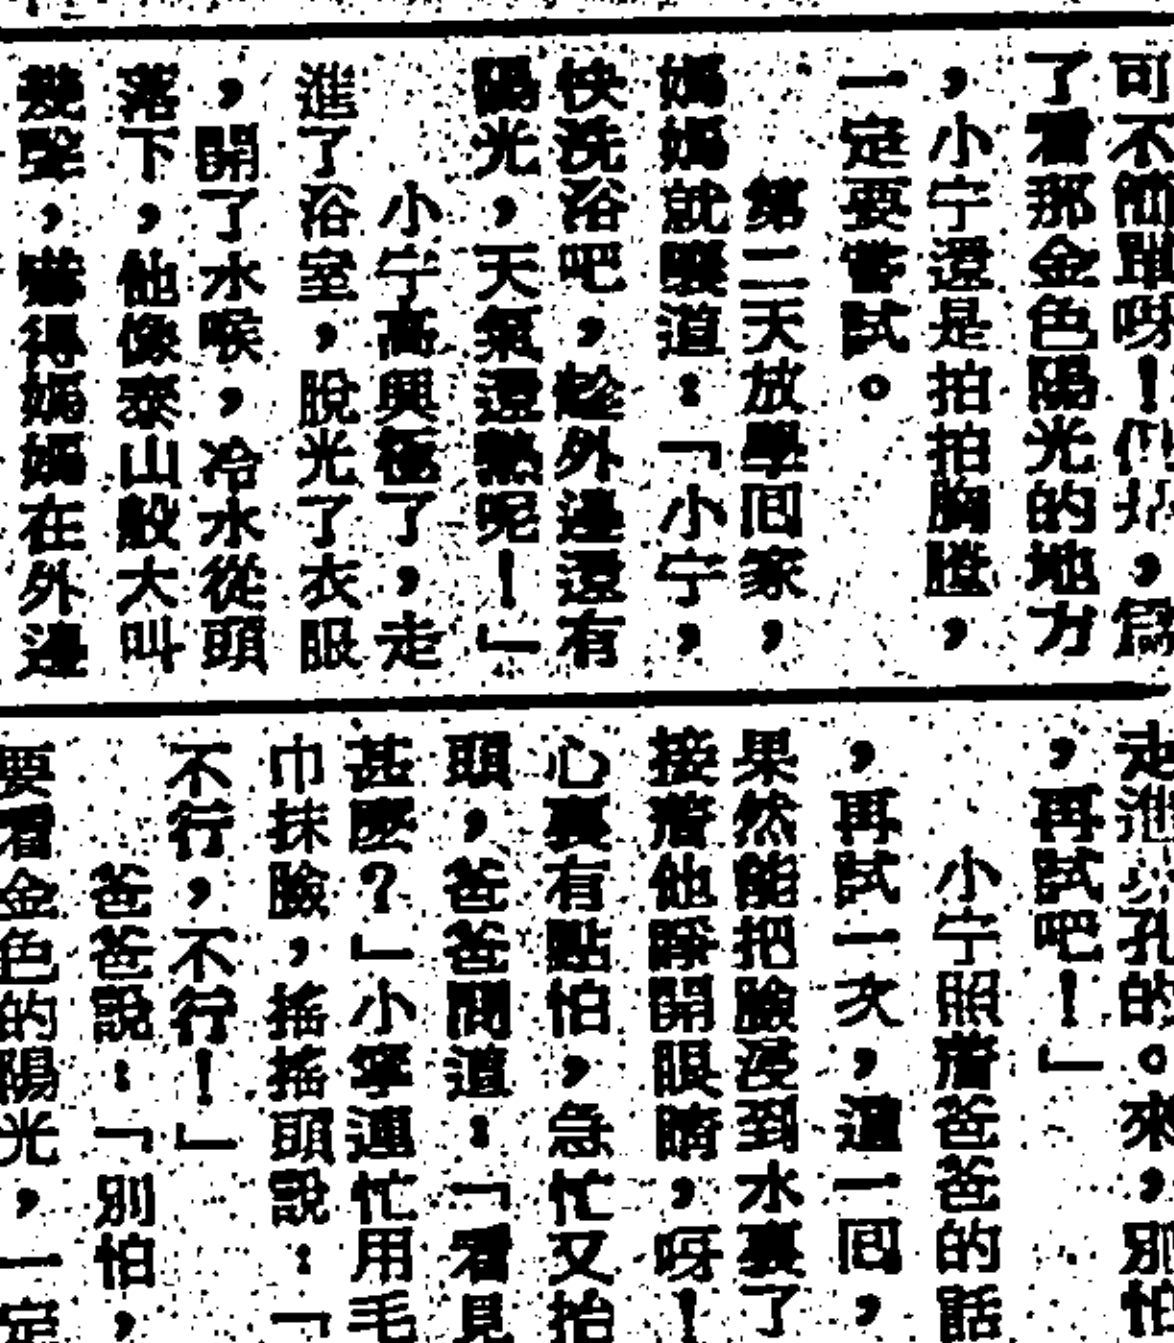 可不簡單呀！　　，爲
了看那金色陽光的地方
，小宁還是拍拍胸膛，
一定要嘗試。
第二天放學囘家，
媽媽就嚷道：「小宁，
快洗浴吧，趁外邊還有
陽光，天氣還熱呢！」
小宁高興極了，走
進了浴室，脫光了衣服
，開了水喉，冷水從頭
落下，他像泰山般大叫
幾聲，嚇得媽媽在外邊
走進　孔的。來，別怕
，再試吧！」
小宁照着爸爸的話
，再試一次，這一囘，
果然能把臉浸到水裏了
接着他睜開眼睛，呀！
心裏有點怕，急忙又抬
頭，爸爸問道：「看見
甚麽？」小寧連忙用毛
巾抹臉，搖搖頭說：「
不行，不行！」
爸爸說：「別怕，
要看金色的陽光，一定